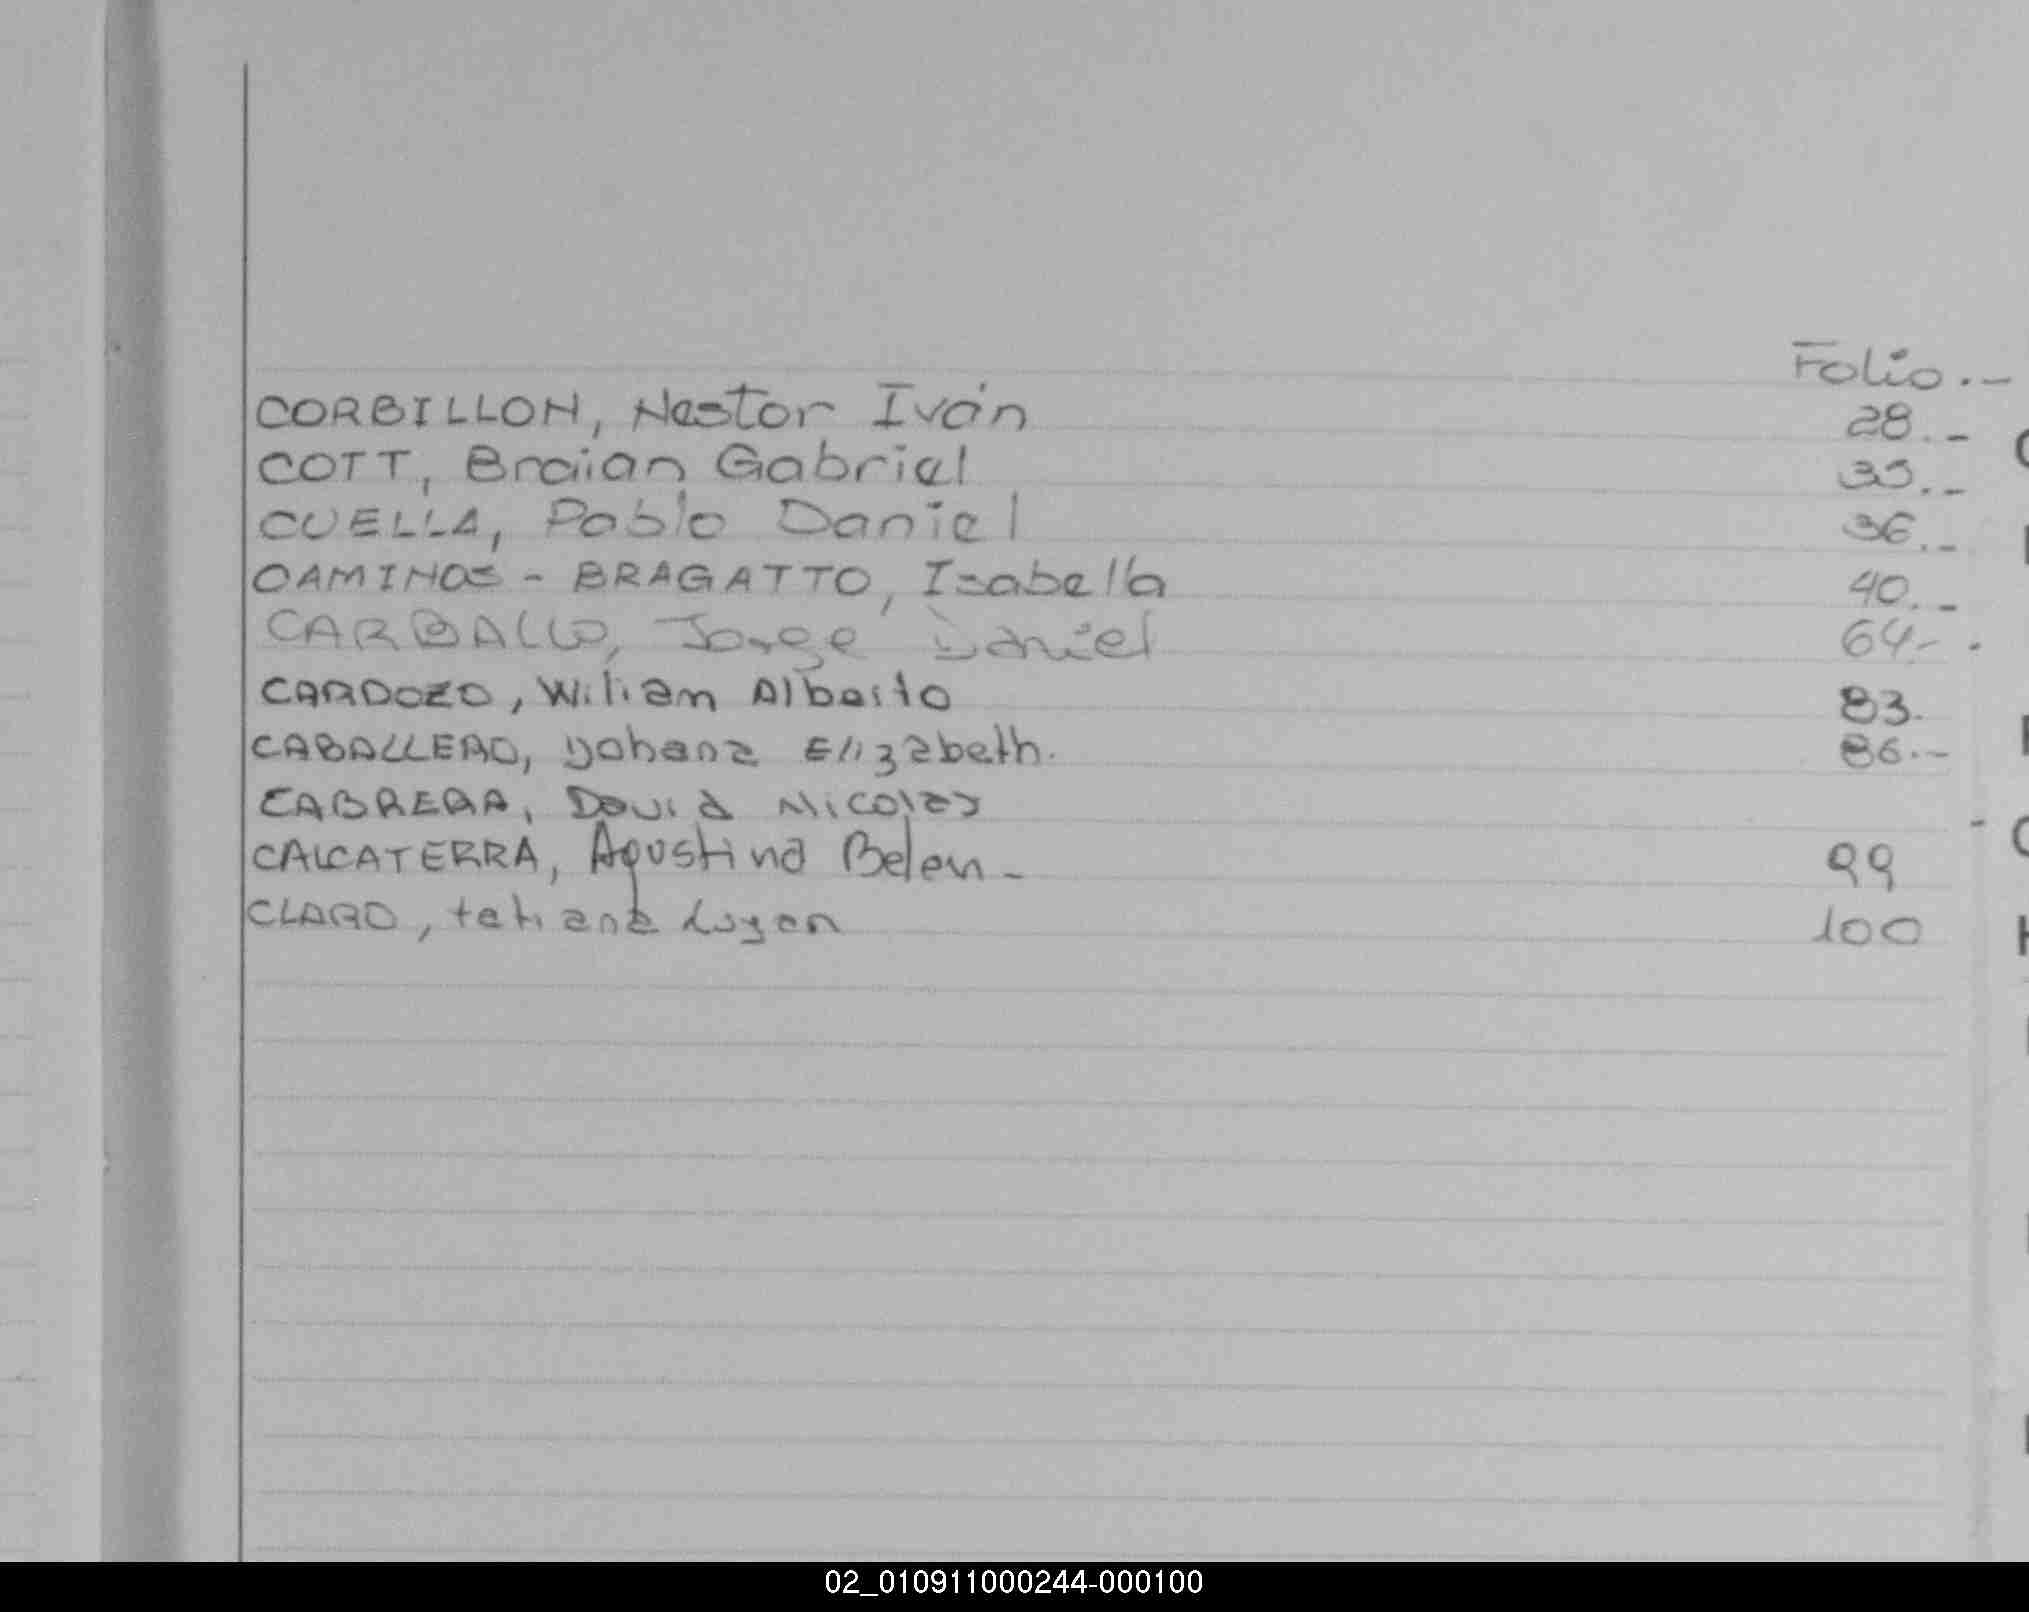 Folio.-
CORBILLON, Nestor Iván 28.-
COTT, Braian Gabriel 33.-
CUELLA, Pablo Daniel 36.-
CAMINOS - BRAGATTO, Isabella 40.-
CARBALLO, Jorge Daniel 64.-
CARDOZO, Wiliam Alberto 83.
CABALLERO, Yohana Elizabeth. 86.-
CABRERA, David Nicolas -
CALCATERRA, Agustina Belen - 99
CLARO, tatiana Luyen 100
02_010911000244-000100